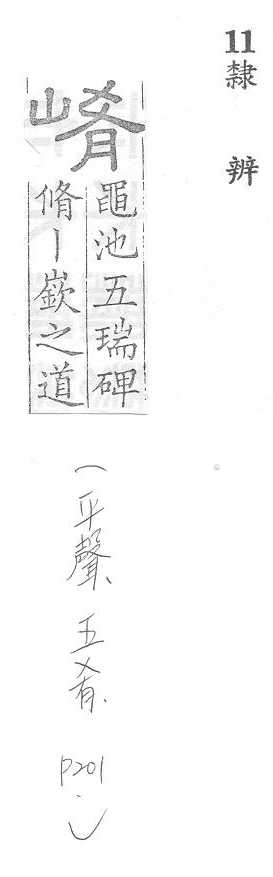 11隸辨
崤
黽池五瑞碑
脩丨嶔之道
(平聲、五肴、P201.)